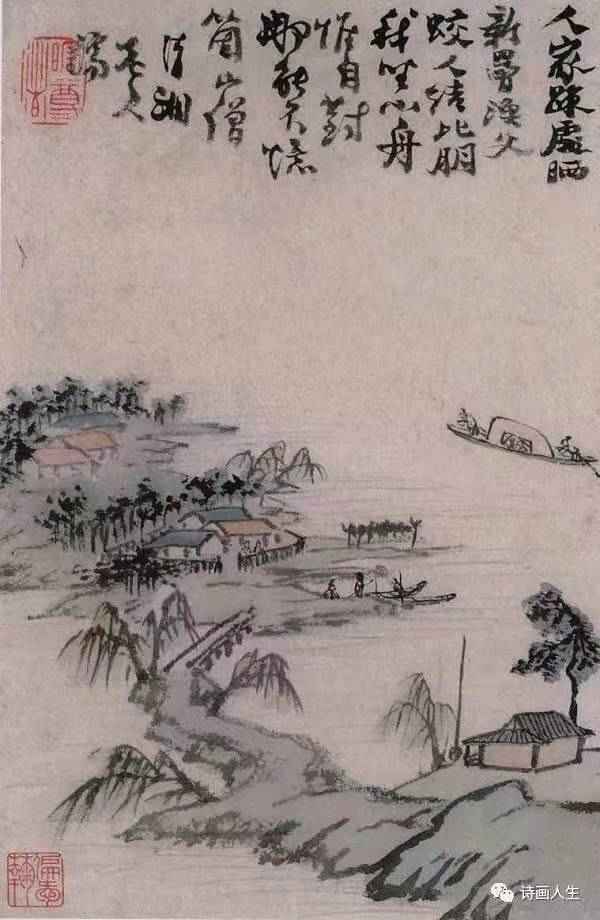 人家疎處晒
新罾漁父
蛟人結比朋
我坐小舟
惟自對
那能不憶
箇山僧
清湘
老人
濟
诗画人生